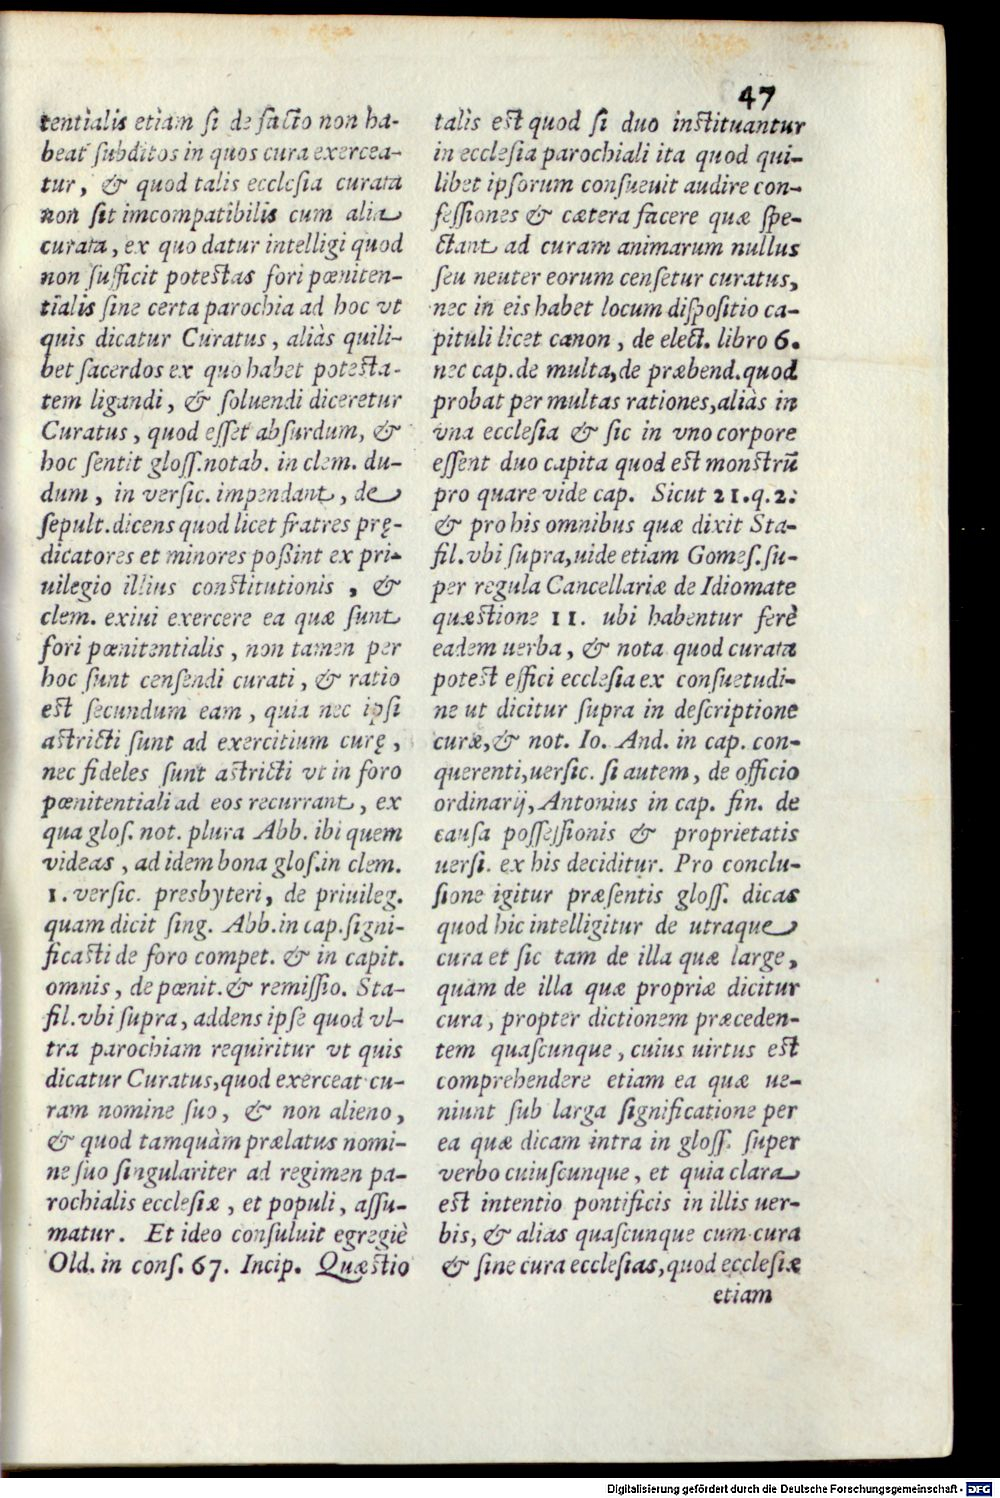 47
tentialis etiam si de facto non ha-
beat subditos in quos cura exercea-
tur, & quod talis ecclesia curata
non sit imcompatibilis cum alia
curata, ex quo datur intelligi quod
non sufficit potestas fori pœniten-
tialis sine certa parochia ad hoc vt
quis dicatur Curatus, aliàs quili-
bet sacerdos ex quo habet potesta-
tem ligandi, & soluendi diceretur
Curatus, quod esset absurdum, &
hoc sentit gloss. notab. in clem. du-
dum, in versic. impendant, de
sepult. dicens quod licet fratres prę-
dicatores et minores poßint ex pri-
uilegio illius constitutionis, &
clem. exiui exercere ea quæ sunt
fori pœnitentialis, non tamen per
hoc sunt censendi curati, & ratio
est secundum eam, quia nec ipsi
astricti sunt ad exercitium curę,
nec fideles sunt astricti vt in foro
pœnitentiali ad eos recurrant, ex
qua glos. not. plura Abb. ibi quem
videas, ad idem bona glos. in clem.
1. versic. presbyteri, de priuileg.
quam dicit sing. Abb. in cap. signi-
ficasti de foro compet. & in capit.
omnis, de pœnit. & remissio. Sta-
fil. vbi supra, addens ipse quod vl-
tra parochiam requiritur vt quis
dicatur Curatus, quod exerceat cu-
ram nomine suo, & non alieno,
& quod tamquàm prælatus nomi-
ne suo singulariter ad regimen pa-
rochialis ecclesiæ, et populi, assu-
matur. Et ideo consuluit egregiè
Old. in cons. 67. Incip. Quæstio
talis est quod si duo instituantur
in ecclesia parochiali ita quod qui-
libet ipsorum consueuit audire con-
fessiones & cætera facere quæ spe-
ctant ad curam animarum nullus
seu neuter eorum censetur curatus,
nec in eis habet locum dispositio ca-
pituli licet canon, de elect. libro 6.
nec cap. de multa, de præbend. quod
probat per multas rationes, aliàs in
vna ecclesia & sic in vno corpore
essent duo capita quod est monstrũ
pro quare vide cap. Sicut 21. q. 2.
& pro his omnibus quæ dixit Sta-
fil. vbi supra, uide etiam Gomes. su-
per regula Cancellariæ de Idiomate
quæstione 11. ubi habentur ferè
eadem uerba, & nota quod curata
potest effici ecclesia ex consuetudi-
ne ut dicitur supra in descriptione
curæ, & not. Io. And. in cap. con-
querenti, uersic. si autem, de officio
ordinarij, Antonius in cap. fin. de
causa possessionis & proprietatis
uersi. ex his deciditur. Pro conclu-
sione igitur præsentis gloss. dicas
quod hic intelligitur de utraque
cura et sic tam de illa quæ large,
quàm de illa quæ propriæ dicitur
cura, propter dictionem præceden-
tem quascunque, cuius uirtus est
comprehendere etiam ea quæ ue-
niunt sub larga significatione per
ea quæ dicam intra in gloss. super
verbo cuiuscunque, et quia clara
est intentio pontificis in illis uer-
bis, & alias quascunque cum cura
& sine cura ecclesias, quod ecclesiæ
etiam
Digitalisierung gefördert durch die Deutsche Forschungsgemeinschaft - DFG